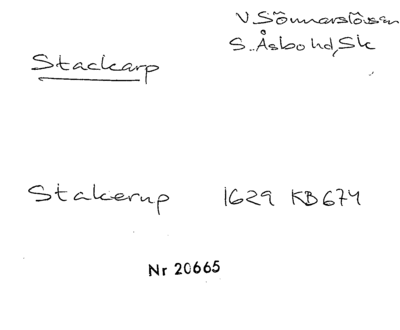 V. Sönnarslövsn
S. Åsbo hd, Sk
Stackarp
Stakerup 1629 KB 674
Nr 20665